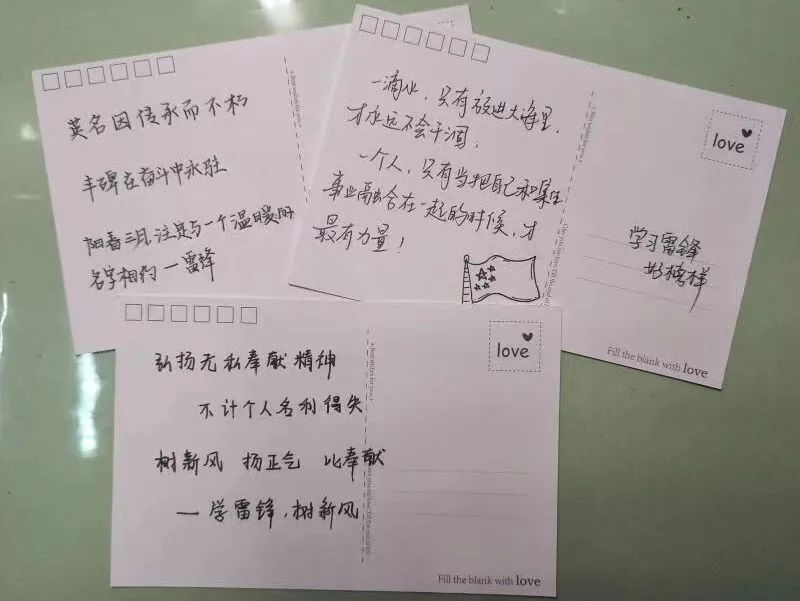 英名因传承而不朽
丰碑在奋斗中永驻
阳春三月,注定与一个温暖的
名字相约一雷锋
一滴水,只有放进大海里,
才永远不会干涸;
一个人,只有当把自己和集体
事业融合在一起的时候,才
最有力量!
love
学习雷锋
好榜样
Fill the blank with love
弘扬无私奉献精神
不计个人名利得失
树新风 扬正气 比奉献
一学雷锋,树新风
love
Fill the blank with love